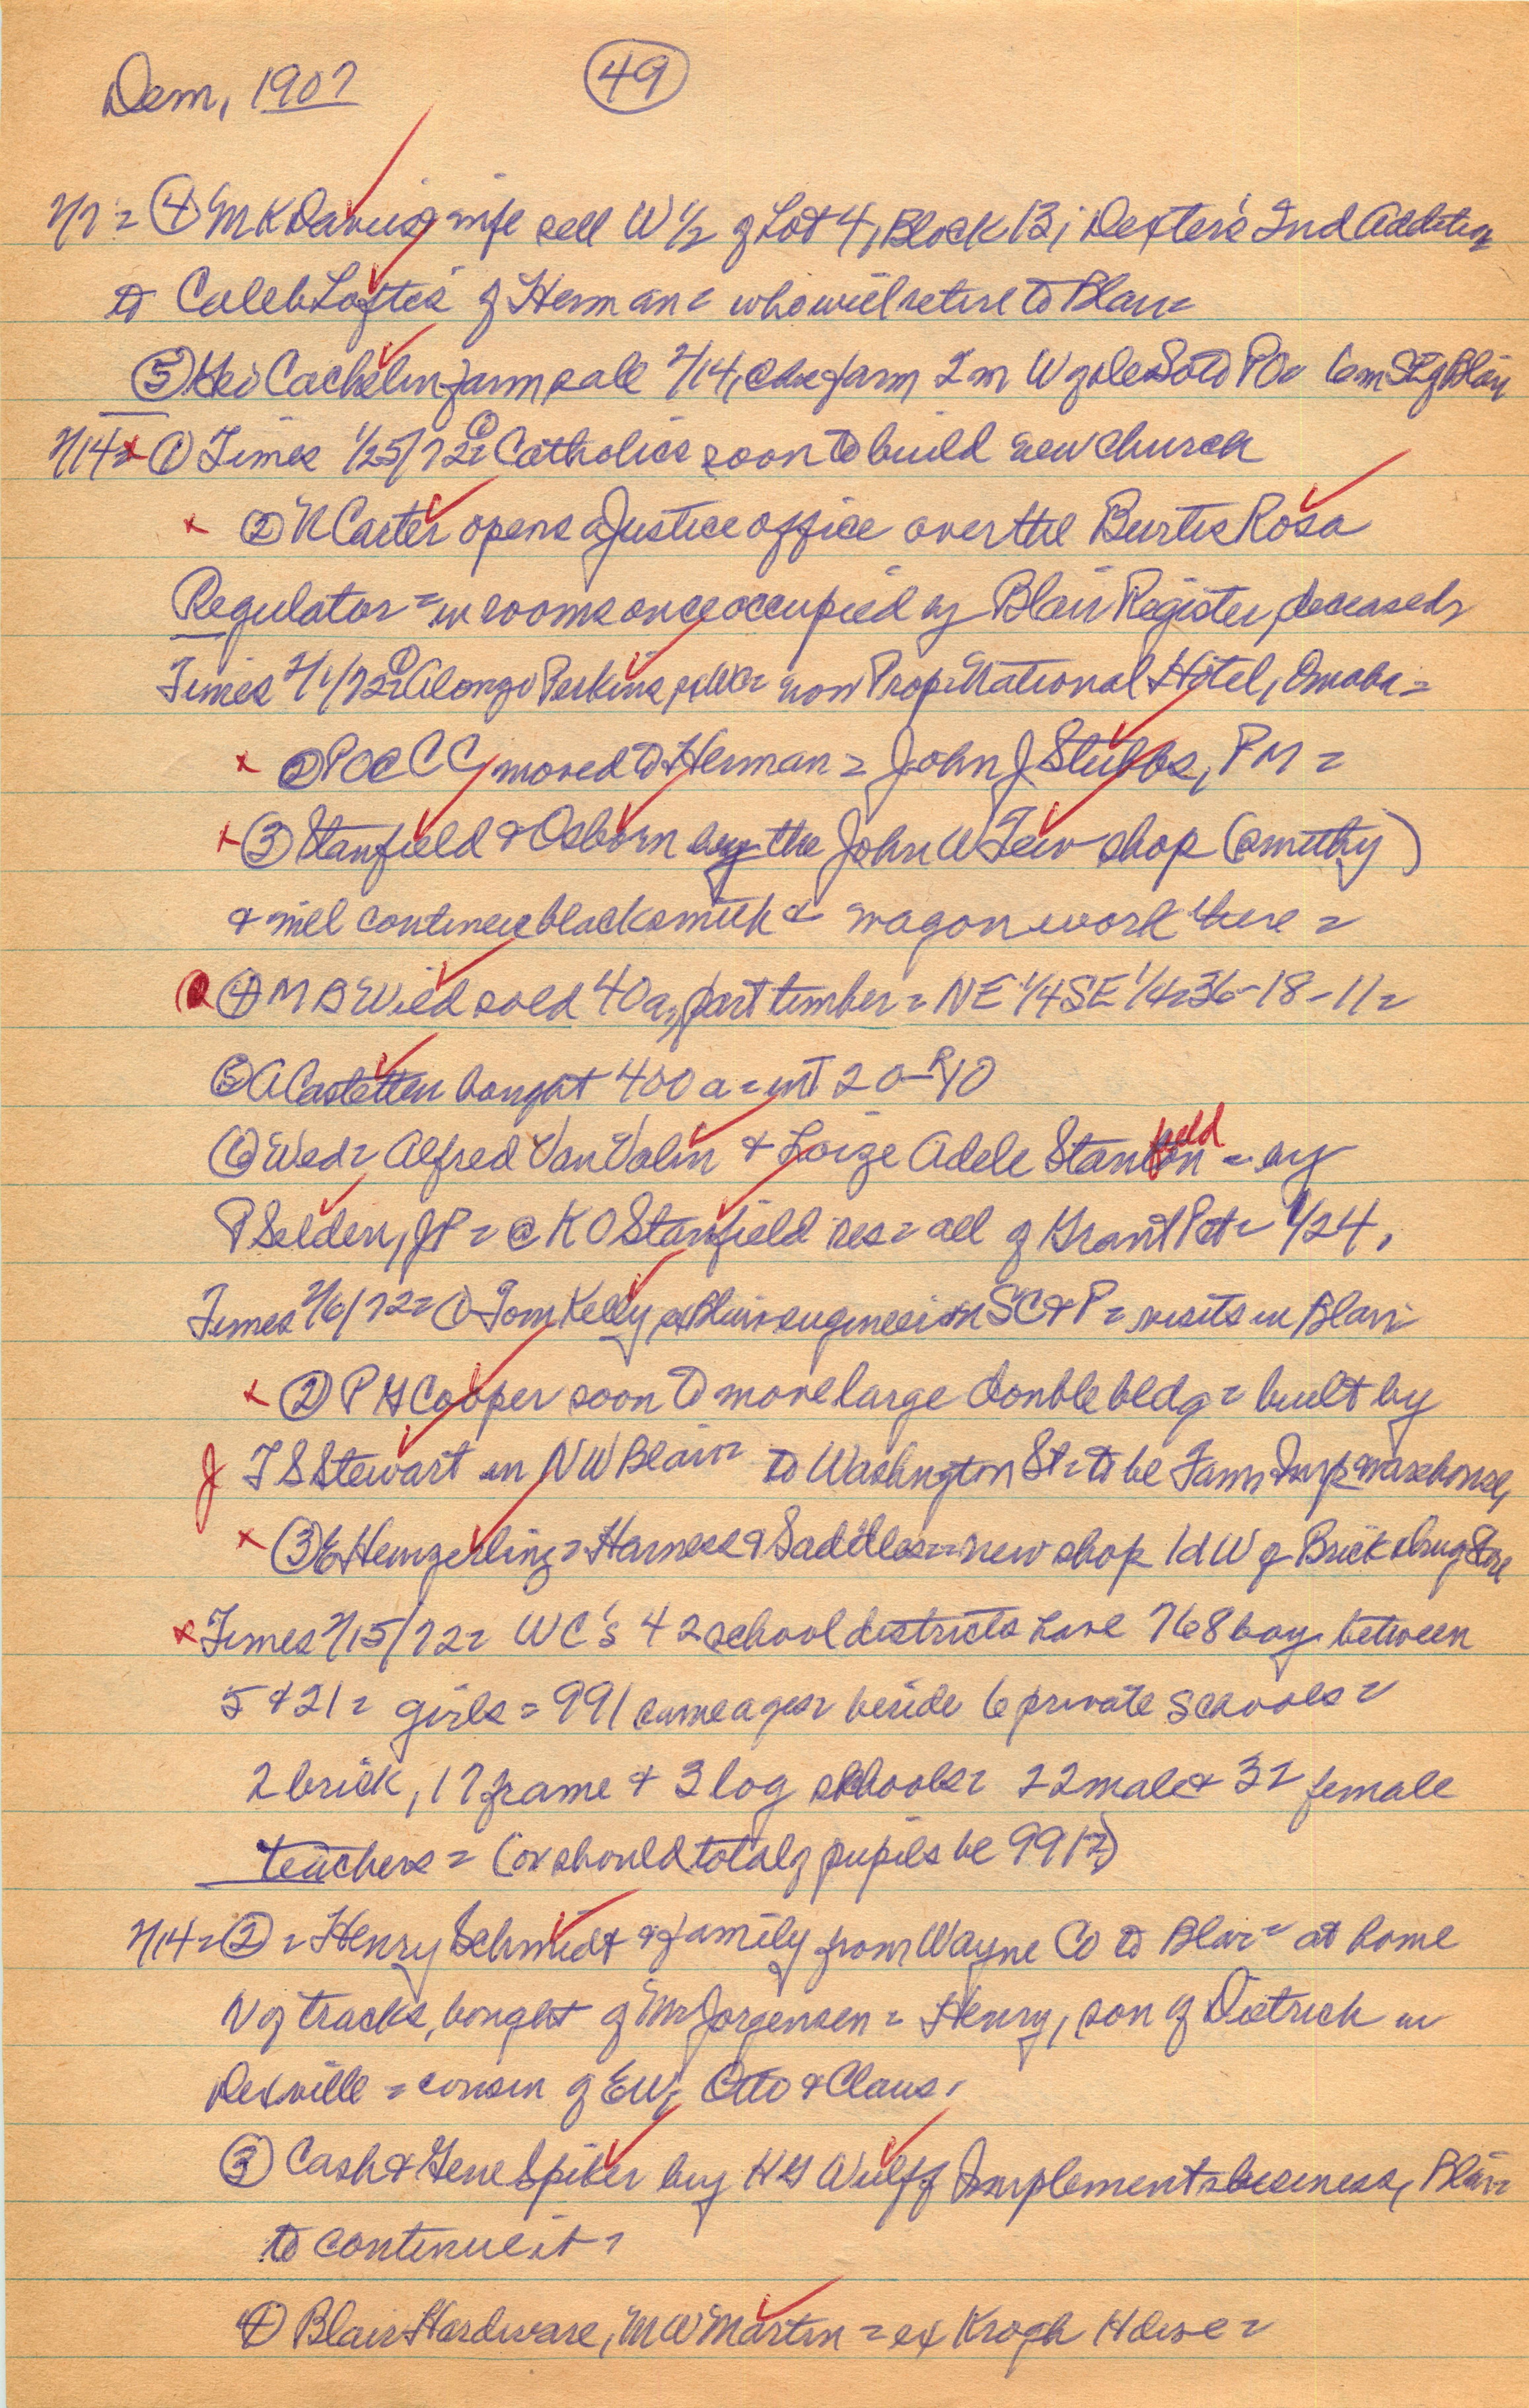 Dem, 1907 (49)
2/7 = (4) M K Davis & wife sell W 1/2 of Lot 4, Block 13, Dexter's 2nd Addition
to Caleb Loftis of Herman = who will retire to Blair =
(5) Cachelin farm sale 2/14, @ farm 2 m W of DeSoto PO = 6 m SE of Blair
2/14 = (1) Times 1/25/72 = (1) Catholics soon to build new church
(2) N Carter opens a Justice office over the Burtis Rosa
Regulator = in rooms once occupied by Blair Register, deceased,
Times 2/1/72 = (1) Alonzo Perkins, = now Prop = National Hotel, Omaha =
(2) PO @ CC moved to Herman = John J Stubbs, PM =
(3) Stanfield & Osborn buy the John W Feiv shop (smithy)
& will continue blacksmith & wagon work there =
(4) M B Wied sold 40 a, part timber = NE 1/4 SE 1/4 = 36-18-11 =
(5) A Castetter bought 400 a = in T 20-R 10
(6) Wed = Alfred Van Valin & Loize Adele Stanton field = by
P Selden, JP = @ K O Stanfield res = all of Grant Pct = 1/24,
Times 2/6/72 = (1) Tom Kelly, ex Blair engineer on SC&P = visits in Blair
(2) P H Cooper soon to move large double bldg = built by
T S Stewart in NW Blair = to Washington St = to be Farm Imp warehouse,
(3) E Hengerling = Harness & Saddles = new shop 1 d W of Brick drug store
Times 2/15/72 = WC's 42 school districts have 768 boys between
5 & 21 = girls = 991 same ages = beside 6 private schools =
2 brick, 17 frame & 3 log schools = 22 male & 32 female
teachers = (or should total of pupils be 991?)
2/14 = (2) = Henry Schmidt & family from Wayne Co to Blair = at home
N of tracks, bought of Mr Jorgensen = Henry, son of Dietrick in
Dexville = cousin of EW, Otto & Claus,
(3) Cash & Gene Spiker buy H G Wulff Implement business, Blair =
to continue it =
(4) Blair Hardware, M W Martin = ex Krogh Hdwe =